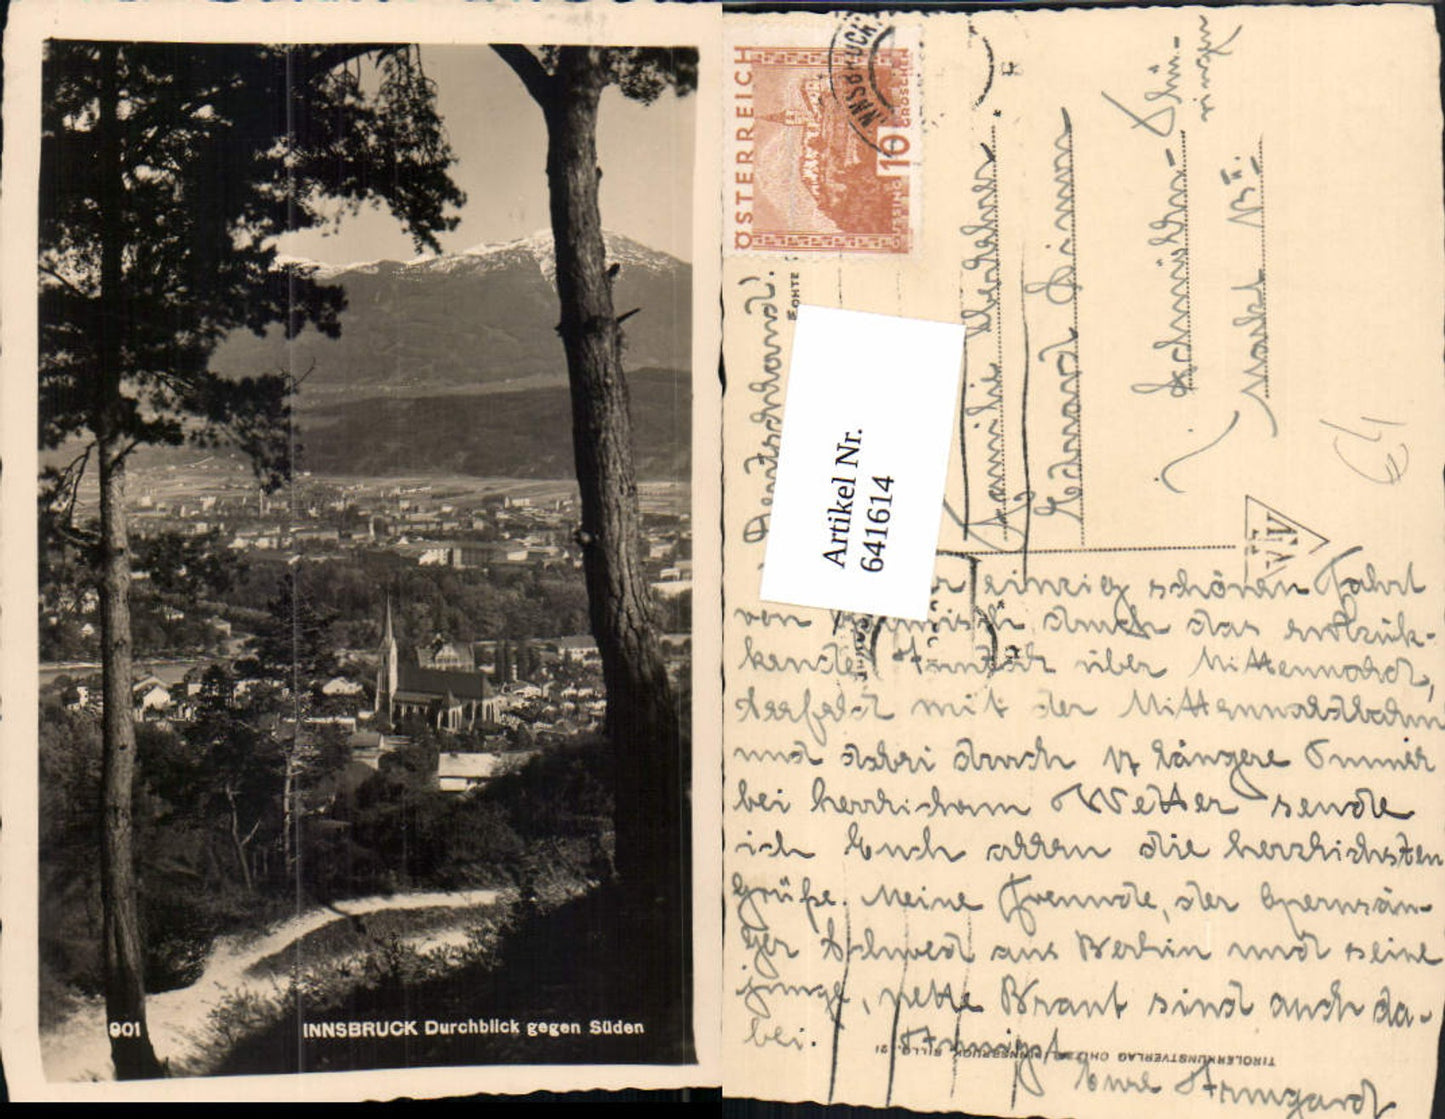 901 INNSBRUCK Durchblick gegen Süden
ÖSTERREICH
10
GROSCHEN
GÜSSING
INNSBRUCK
ECHTE
Artikel Nr.
6411614
Familie
Eduard
Markt
Deutschland!
64
einzig schönen Fahrt
von durch das entzük-
kende über Mittenwald,
Seefeld mit der Mittenwaldbahn
und dabei durch 17 längere Tunnels
bei herrlichem Wetter sende
ich Euch allen die herzlichsten
Grüße. Meine Freunde, der Opernsän-
ger aus Berlin und seine
junge, nette Braut sind auch da-
bei.
Eure Irmgard
TIROLERKUNSTVERLAG CHIZZALI INNSBRUCK